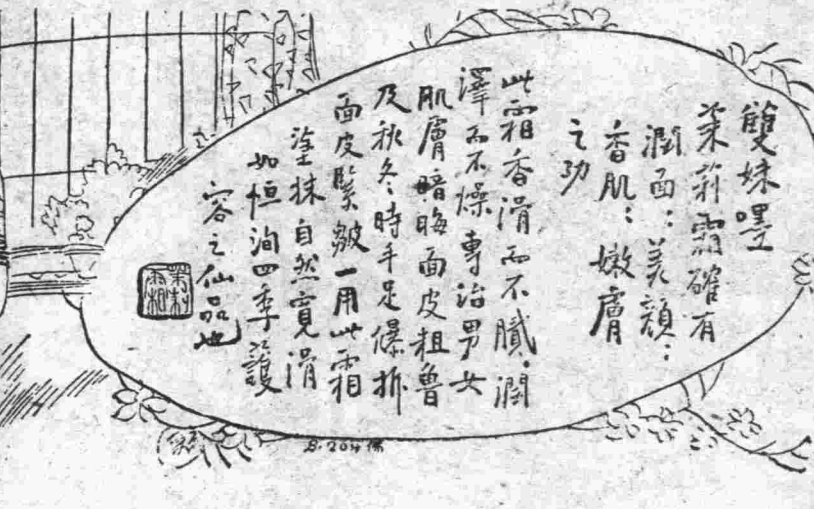 雙妹嚜
茉莉霜確有
潤面：美顏：
香肌：嫩膚
之功
此霜香滑而不膩．潤
澤而不燥專治男女
肌膚暗晦面皮粗魯
及秋冬時手足爆拆
面皮緊皺一用此霜
塗抹自然覓滑
如恒洵四季護
容之仙品也
茉莉
霜
B.204